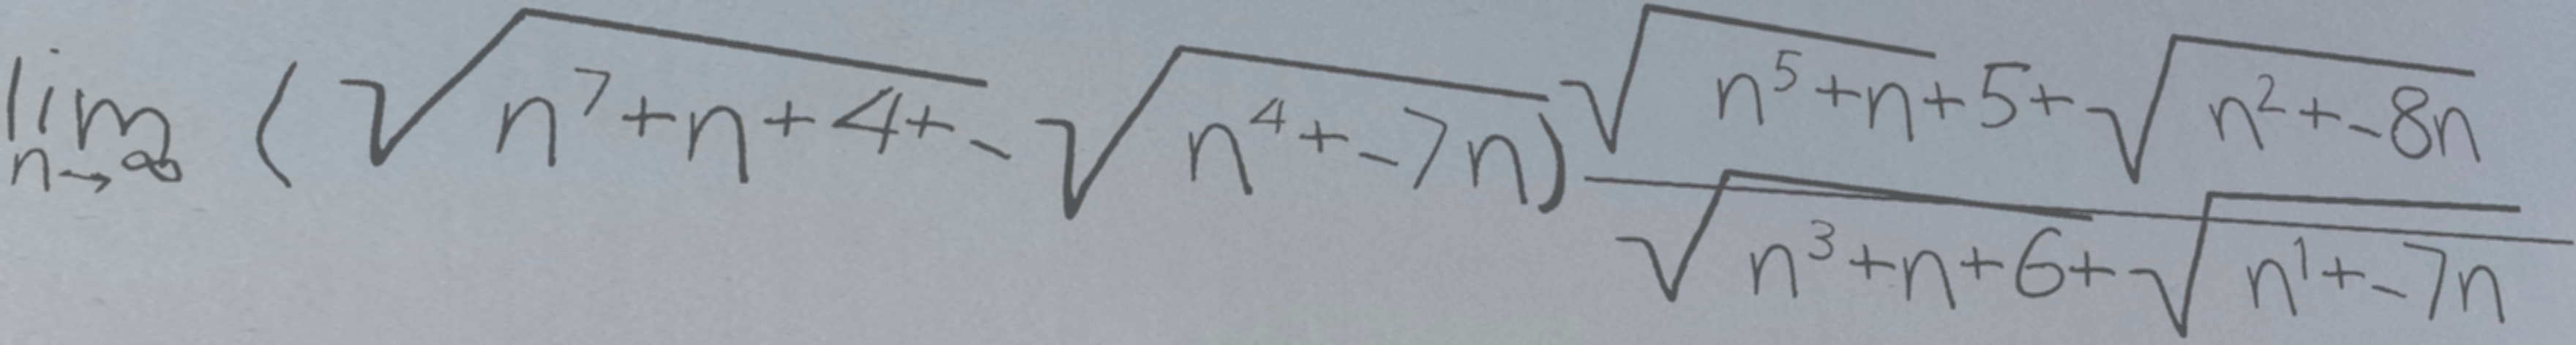 \lim_{n \to \infty} ( \sqrt{n^7+n+4+} - \sqrt{n^4+-7n} ) \frac{\sqrt{n^5+n}+5+\sqrt{n^2+-8n}}{\sqrt{n^3+n+6}+\sqrt{n^1+-7n}}